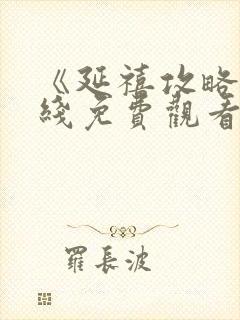 《延禧攻略
綫免費觀看
羅長波